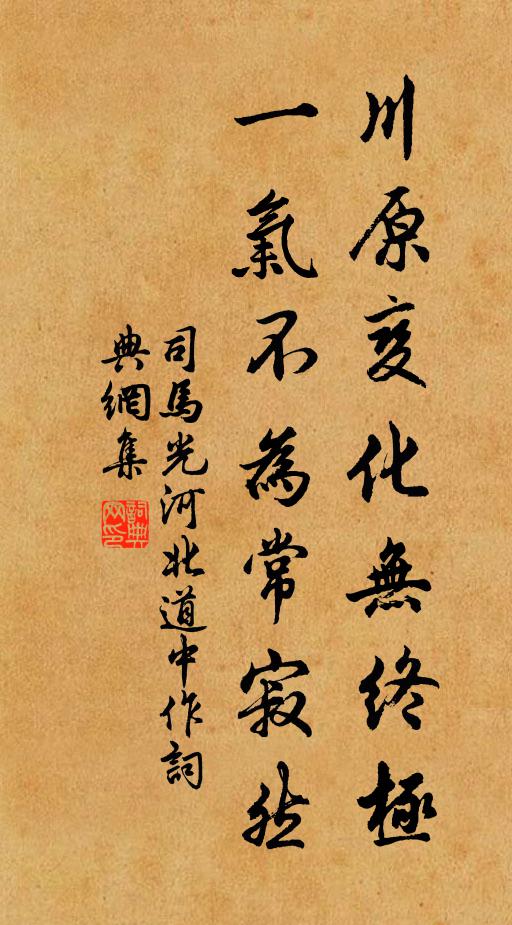 川原变化無終極
一氣不為常寂然
司馬光河北道中作詞
典網集
詞典
网印